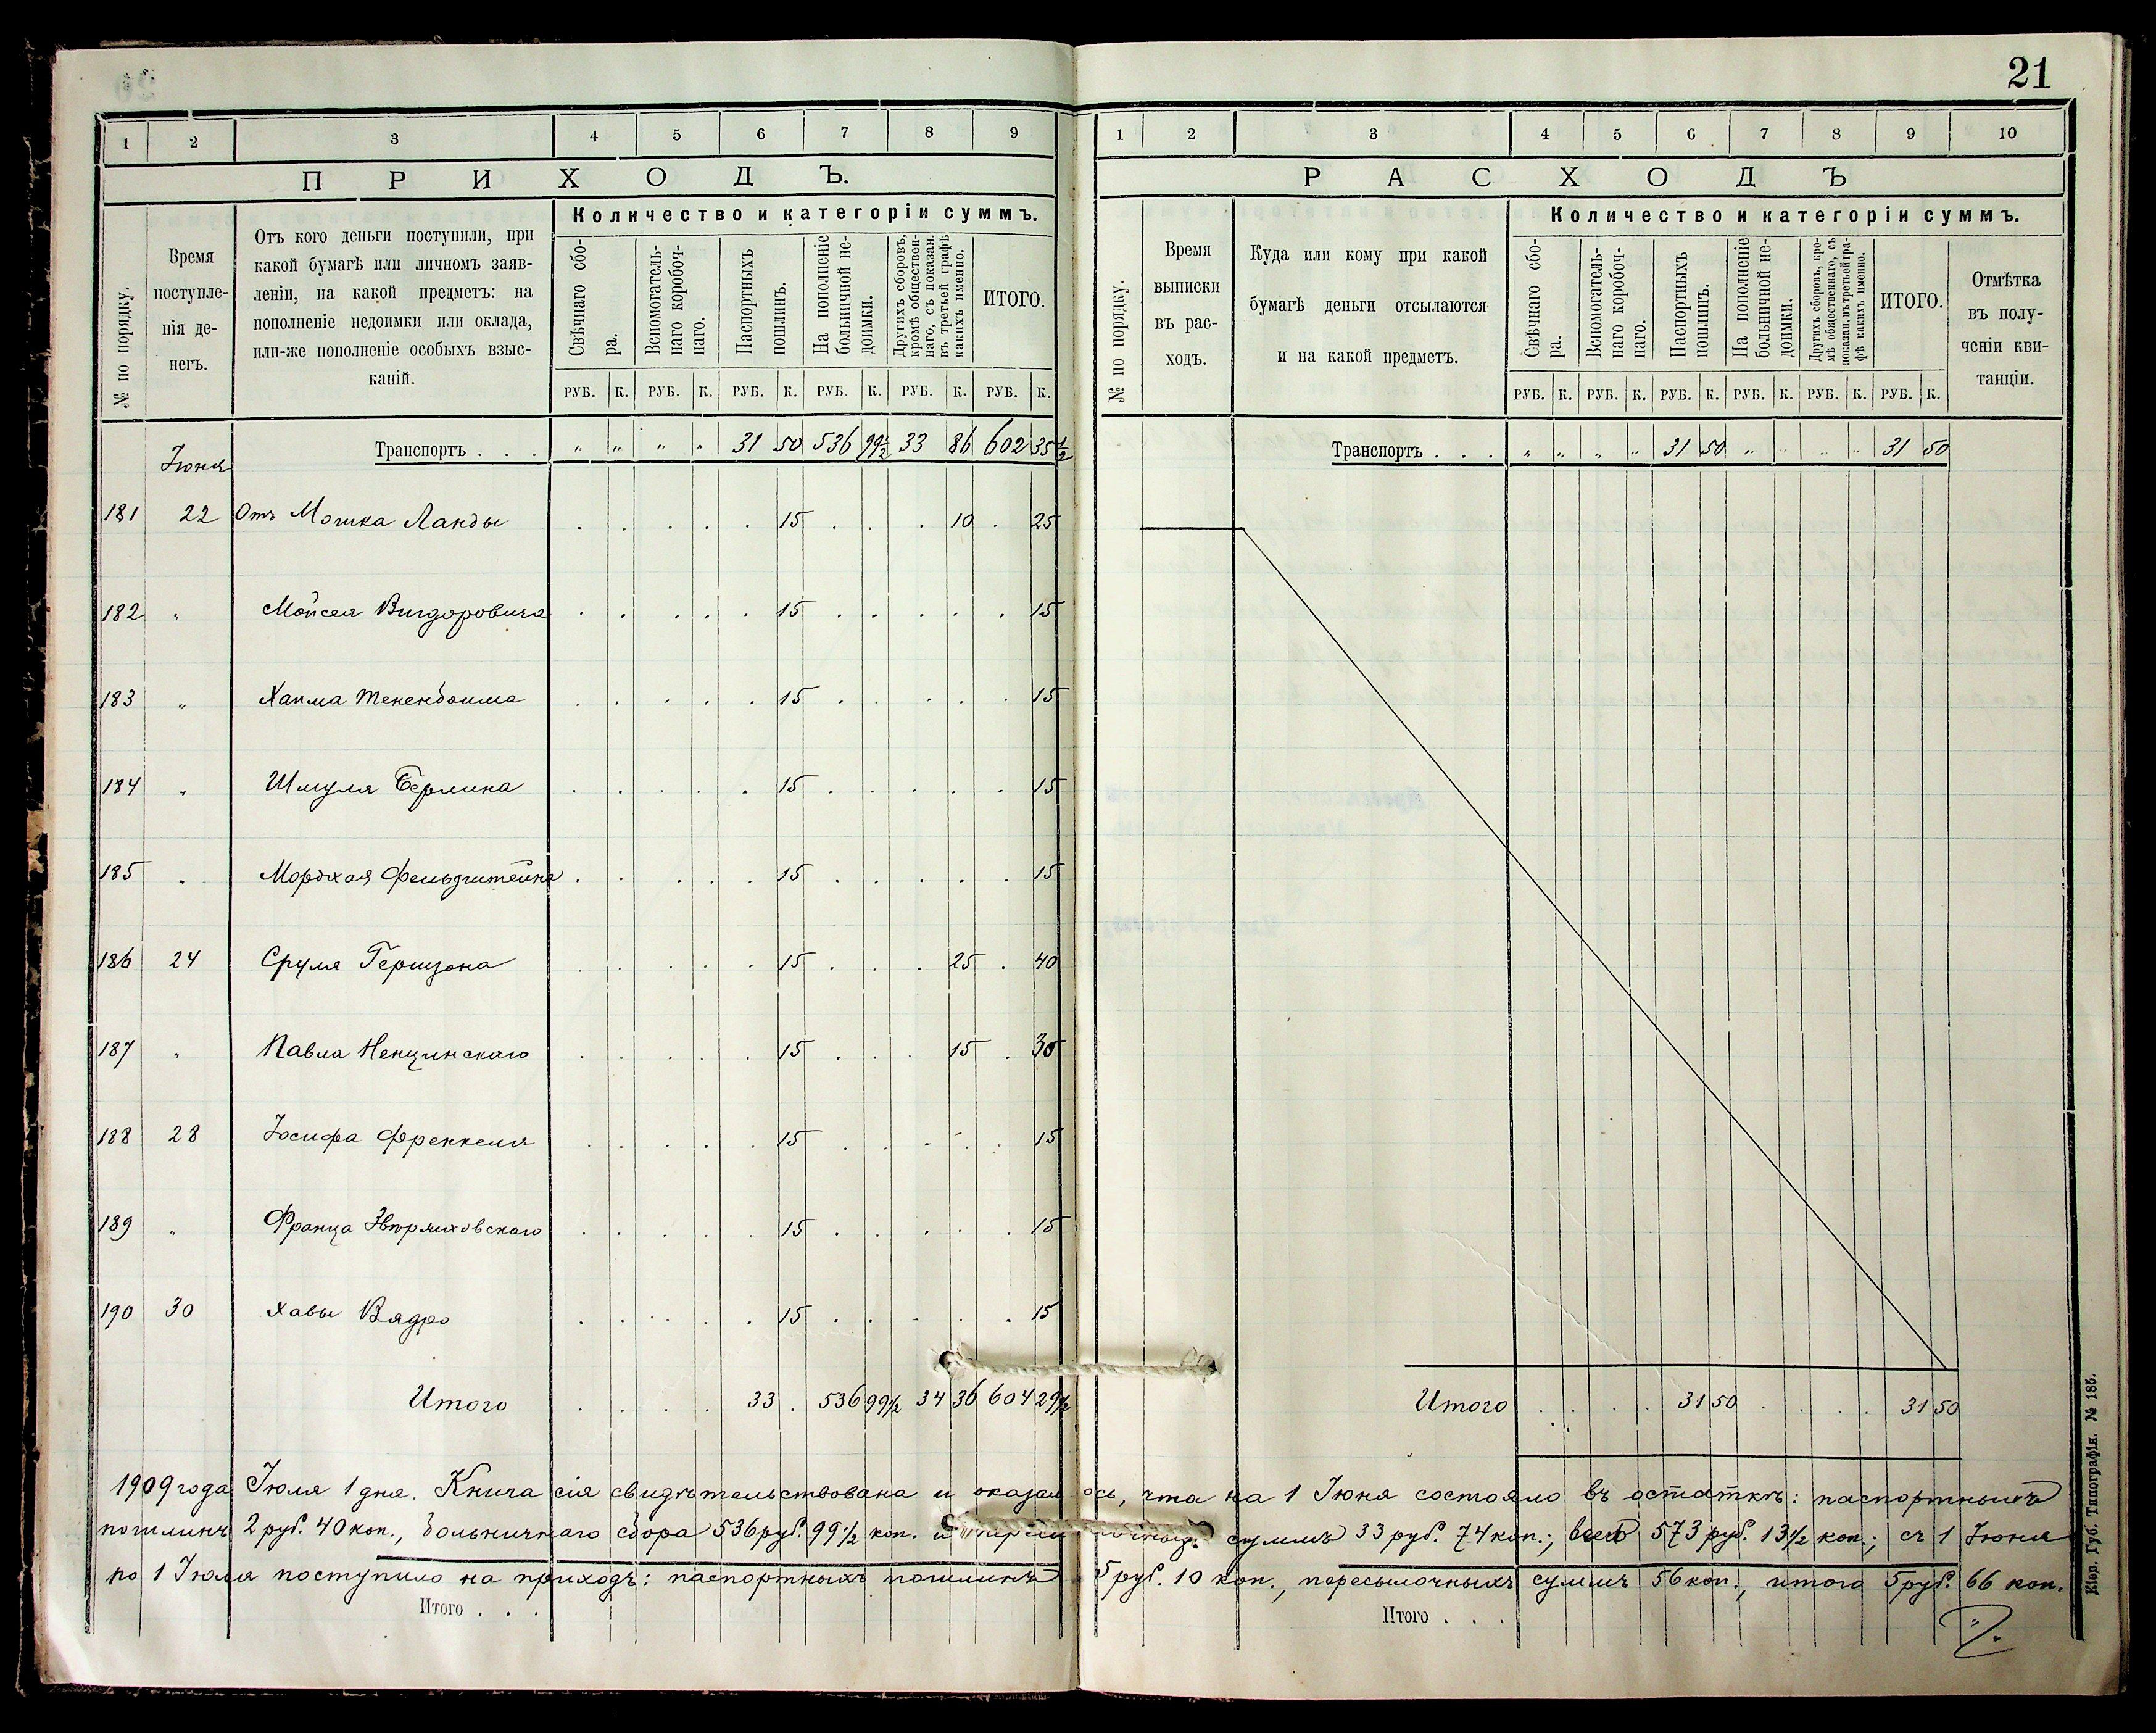 21
1 2 3 4 5 6 7 8 9
ПРИХОДЪ.
№ по порядку.
Время
поступле-
нія де-
негъ.
Отъ кого деньги поступили, при
какой бумагѣ или личномъ заяв-
леніи, на какой предметъ: на
пополненіе недоимки или оклада,
или-же пополненіе особыхъ взыс-
каній.
Количество и категоріи суммъ.
Свѣчнаго сбо-
ра.
Вспомогатель-
наго коробоч-
наго.
Паспортныхъ
пошлинъ.
На пополненіе
больничной не-
доимки.
Другихъ сборовъ,
кромѣ обществен-
наго, съ показан.
въ третьей графѣ
какихъ именно.
ИТОГО.
РУБ. К. РУБ. К. РУБ. К. РУБ. К. РУБ. К. РУБ. К.
Транспортъ . . . „ „ „ „ 31 50 536 99½ 33 86 602 35½
Іюня
181 22 Отъ Мошка Ланды 15 10 25
182 „ Мойсея Вигдоровича 15 15
183 „ Хаима Тененбоима 15 15
184 „ Шмуля Берлина 15 15
185 „ Мордхая Фельдштейна 15 15
186 24 Сруля Герцзона 15 25 40
187 „ Павла Ненцинскаго 15 15 30
188 28 Іосифа Френкеля 15 15
189 „ Франца 15 15
190 30 Хавы Вядро 15 15
Итого 33 . 536 99½ 34 36 604 29½
1 2 3 4 5 6 7 8 9 10
РАСХОДЪ
№ по порядку.
Время
выписки
въ рас-
ходъ.
Куда или кому при какой
бумагѣ деньги отсылаются
и на какой предметъ.
Количество и категоріи суммъ.
Свѣчнаго сбо-
ра.
Вспомогатель-
наго коробоч-
наго.
Паспортныхъ
пошлинъ.
На пополненіе
больничной не-
доимки.
Другихъ сборовъ, кро-
мѣ общественнаго, съ
показан. въ третьей гра-
фѣ какихъ именно.
ИТОГО.
Отмѣтка
въ полу-
ченіи кви-
танціи.
РУБ. К. РУБ. К. РУБ. К. РУБ. К. РУБ. К. РУБ. К.
Транспортъ . . . „ „ „ „ 31 50 „ „ „ „ 31 50
Итого 31 50 31 50
1909 года Іюля 1 дня. Книга сія свидѣтельствована и оказалось, что на 1 Іюня состояло въ остаткѣ: паспортныхъ
пошлинъ 2 руб. 40 коп., больничнаго сбора 536 руб. 99½ коп. и суммъ 33 руб. 74 коп.; всего 573 руб. 13½ коп.; съ 1 Іюня
по 1 Іюля поступило на приходъ: паспортныхъ пошлинъ 5 руб. 10 коп., пересылочныхъ суммъ 56 коп., итого 5 руб. 66 коп.
Итого . . .
Итого . . .
Кіев. Губ. Типографія. № 185.